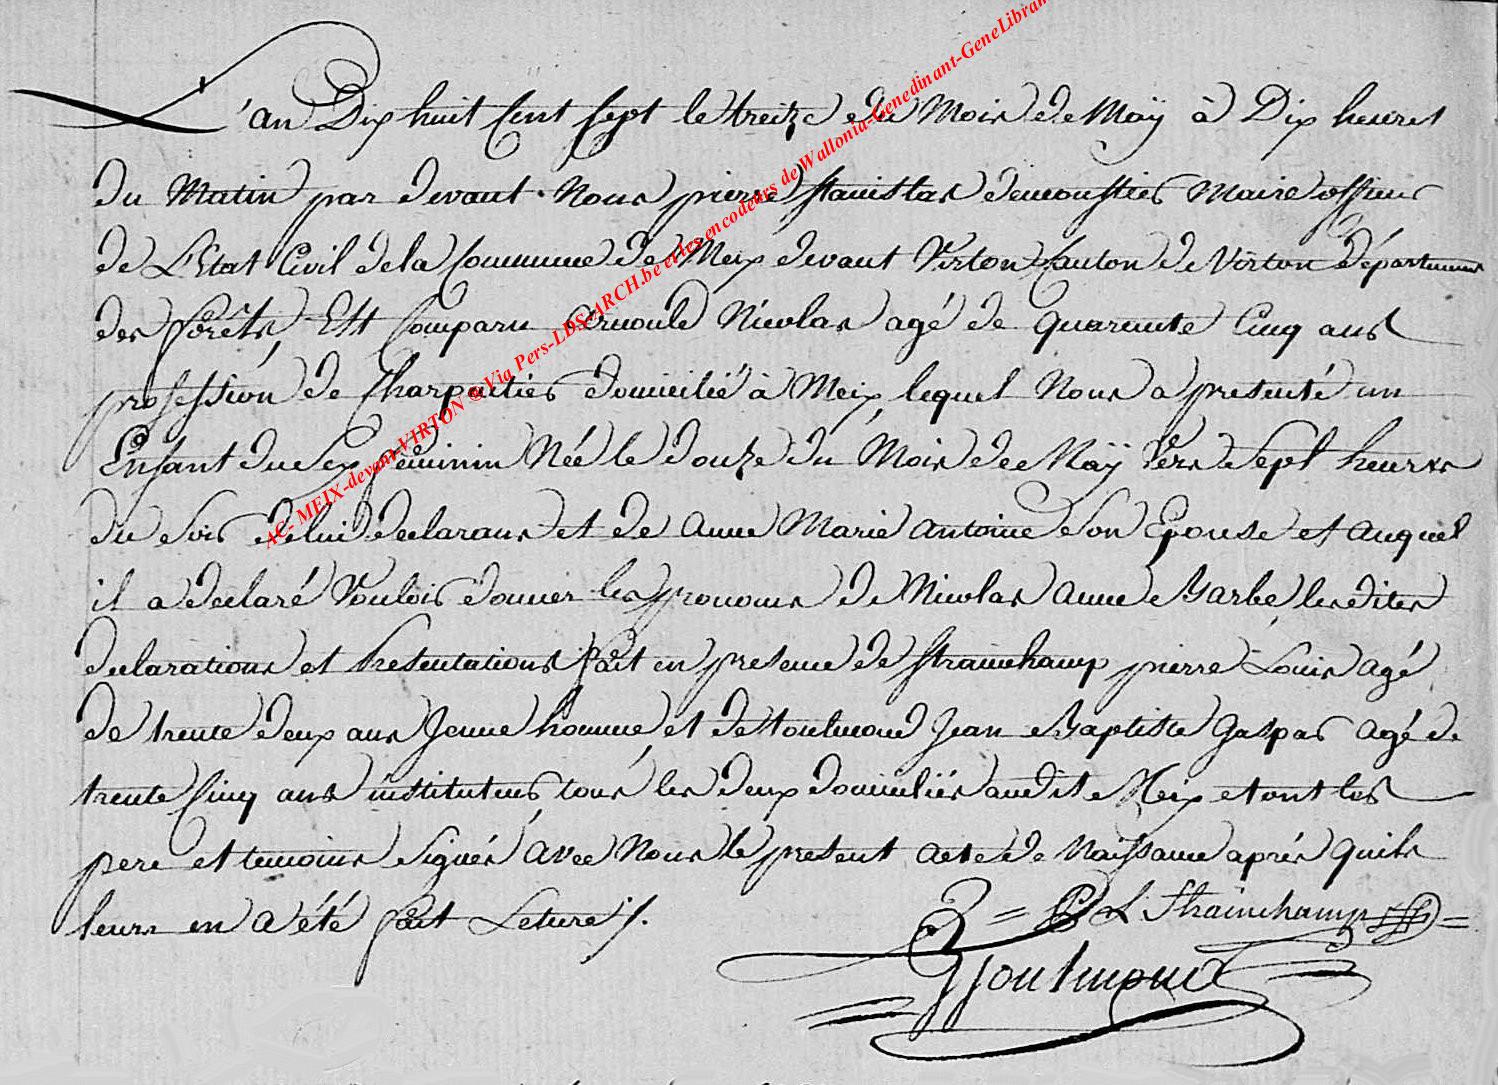 L'an Dix huit Cent Sept le treize du Mois de Maÿ à Dix heures
du Matin par devant Nous pierre Stanislas demoustier Maire officier
de L'Etat Civil de la Commune de Meix devant Virton Canton de Virton département
des forêts, Est Comparu Nicolas agé de Quarante Cinq ans
profession de Charpentier domicilié à Meix, lequel Nous a presenté un
Enfant du Sex feminin Née le douze du Mois de Maÿ Vers Sept heures
du soir de lui declarant et de anne Marie antoine son Epouse et auquel
il a declaré Vouloir donner les prenoms de Nicolas anne Barbe, lesdites
declarations et Presentations fait en presence de Strainchamp pierre Louis agé
de trente deux ans Jeune homme, et de toulmond Jean Baptiste Gaspar agé de
trente Cinq ans instituteur, tous les deux domiciliés audit Meix et ont les
pere et temoins Signés avec Nous le present acte de Naissance aprés quils
leurs en a été fait Leture ./.
P L Strainchamp
Toulmond
AC- MEIX-devant-VIRTON @ Via Pers-LDS-ARCH.be et les encodeurs de Wallonia-Genedinant-GeneLibran